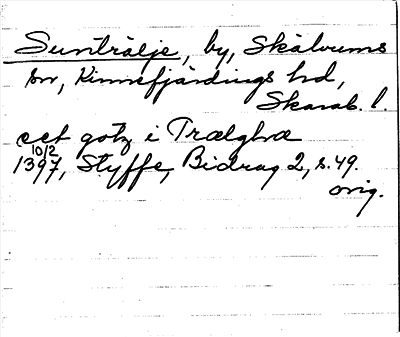 Sunträlje, by, Skälvums
sn, Kinnefjärdings hd,
Skarab. l.
eet gotz i Trælghæ
10/2
1397, Styffe, Bidrag 2, s. 49.
orig.